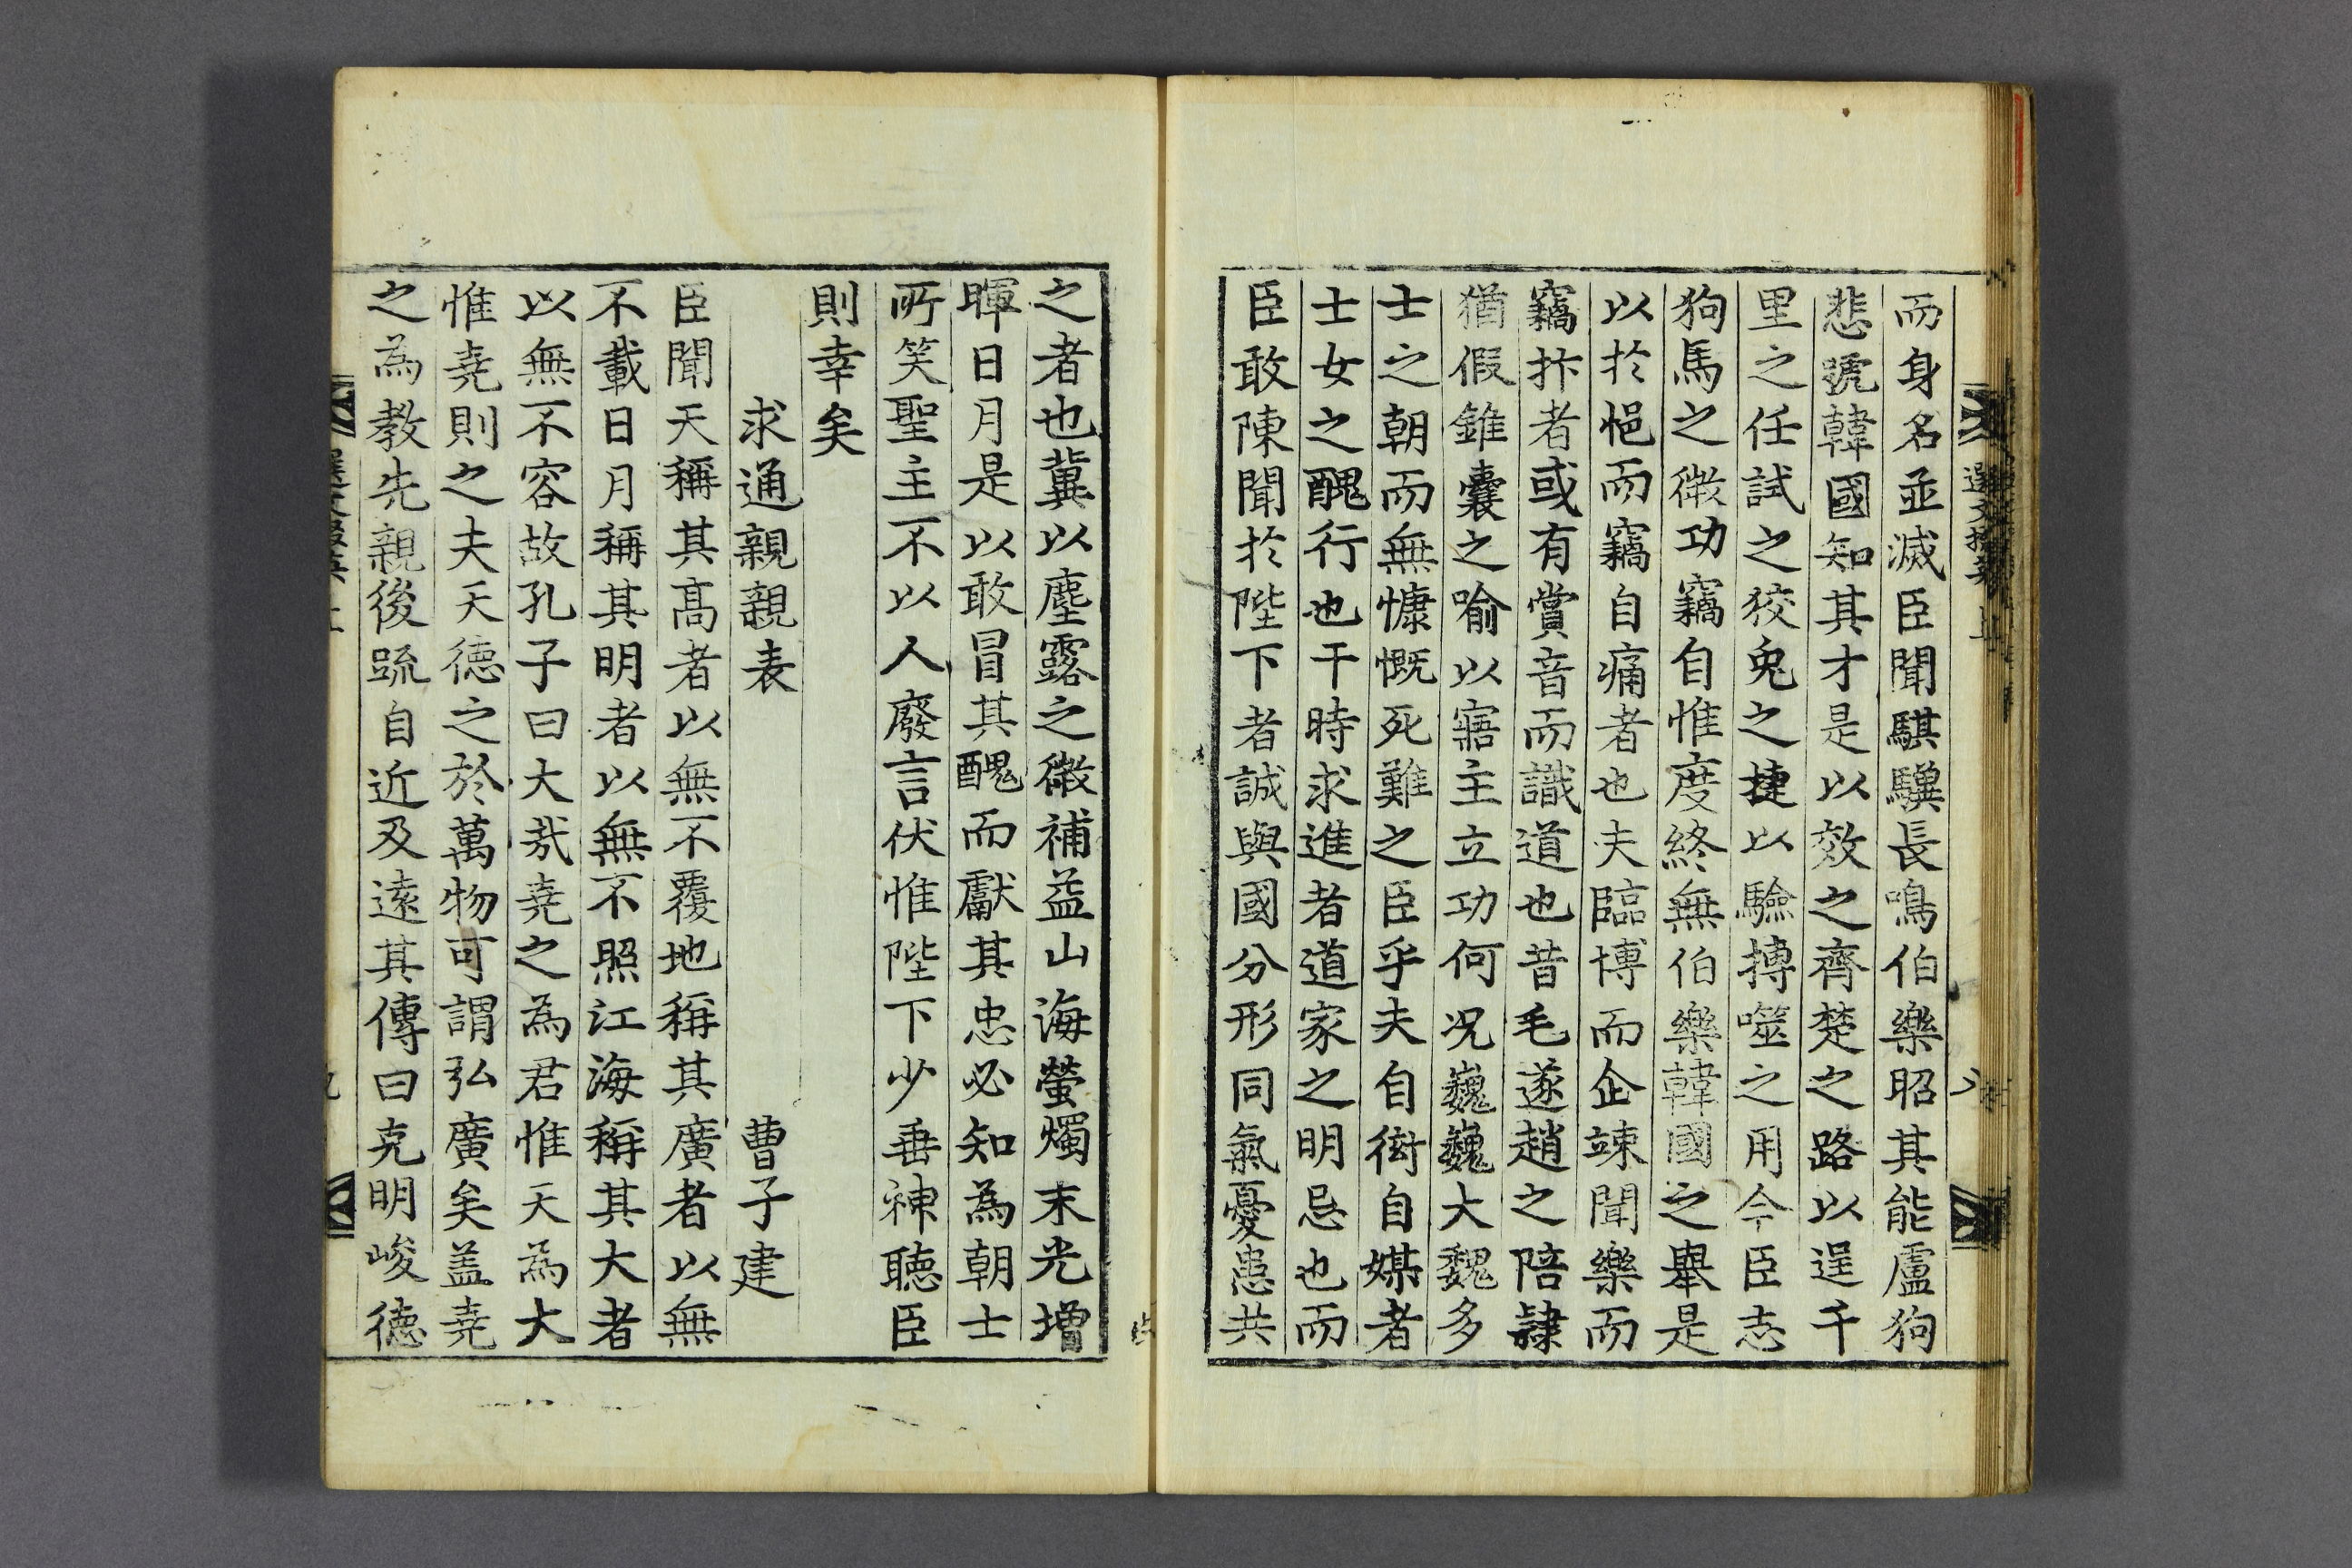 而身名並滅臣聞騏驥長鳴伯樂昭其能盧狗
悲號韓國知其才是以效之齊楚之路以逞千
里之任試之狡兔之捷以驗搏噬之用今臣志
狗馬之微功竊自惟度終無伯樂韓國之舉是
以於悒而竊自痛者也夫臨博而企竦聞樂而
竊抃者或有賞音而識道也昔毛遂趙之陪隸
猶假錐囊之喻以寤主立功何况巍巍大魏多
士之朝而無慷慨死難之臣乎夫自衒自媒者
士女之醜行也干時求進者道家之明忌也而
臣敢陳聞於陛下者誠與國分形同氣憂患共
之者也冀以塵露之微補益山海螢燭末光增
暉日月是以敢冒其醜而獻其忠必知為朝士
所笑聖主不以人廢言伏惟陛下少垂神聽臣
則幸矣
求通親親表 曹子建
臣聞天稱其高者以無不覆地稱其廣者以無
不載日月稱其明者以無不照江海稱其大者
以無不容故孔子曰大哉堯之為君惟天為大
惟堯則之夫天德之於萬物可謂弘廣矣盖堯
之為教先親後疏自近及遠其傳曰克明峻德